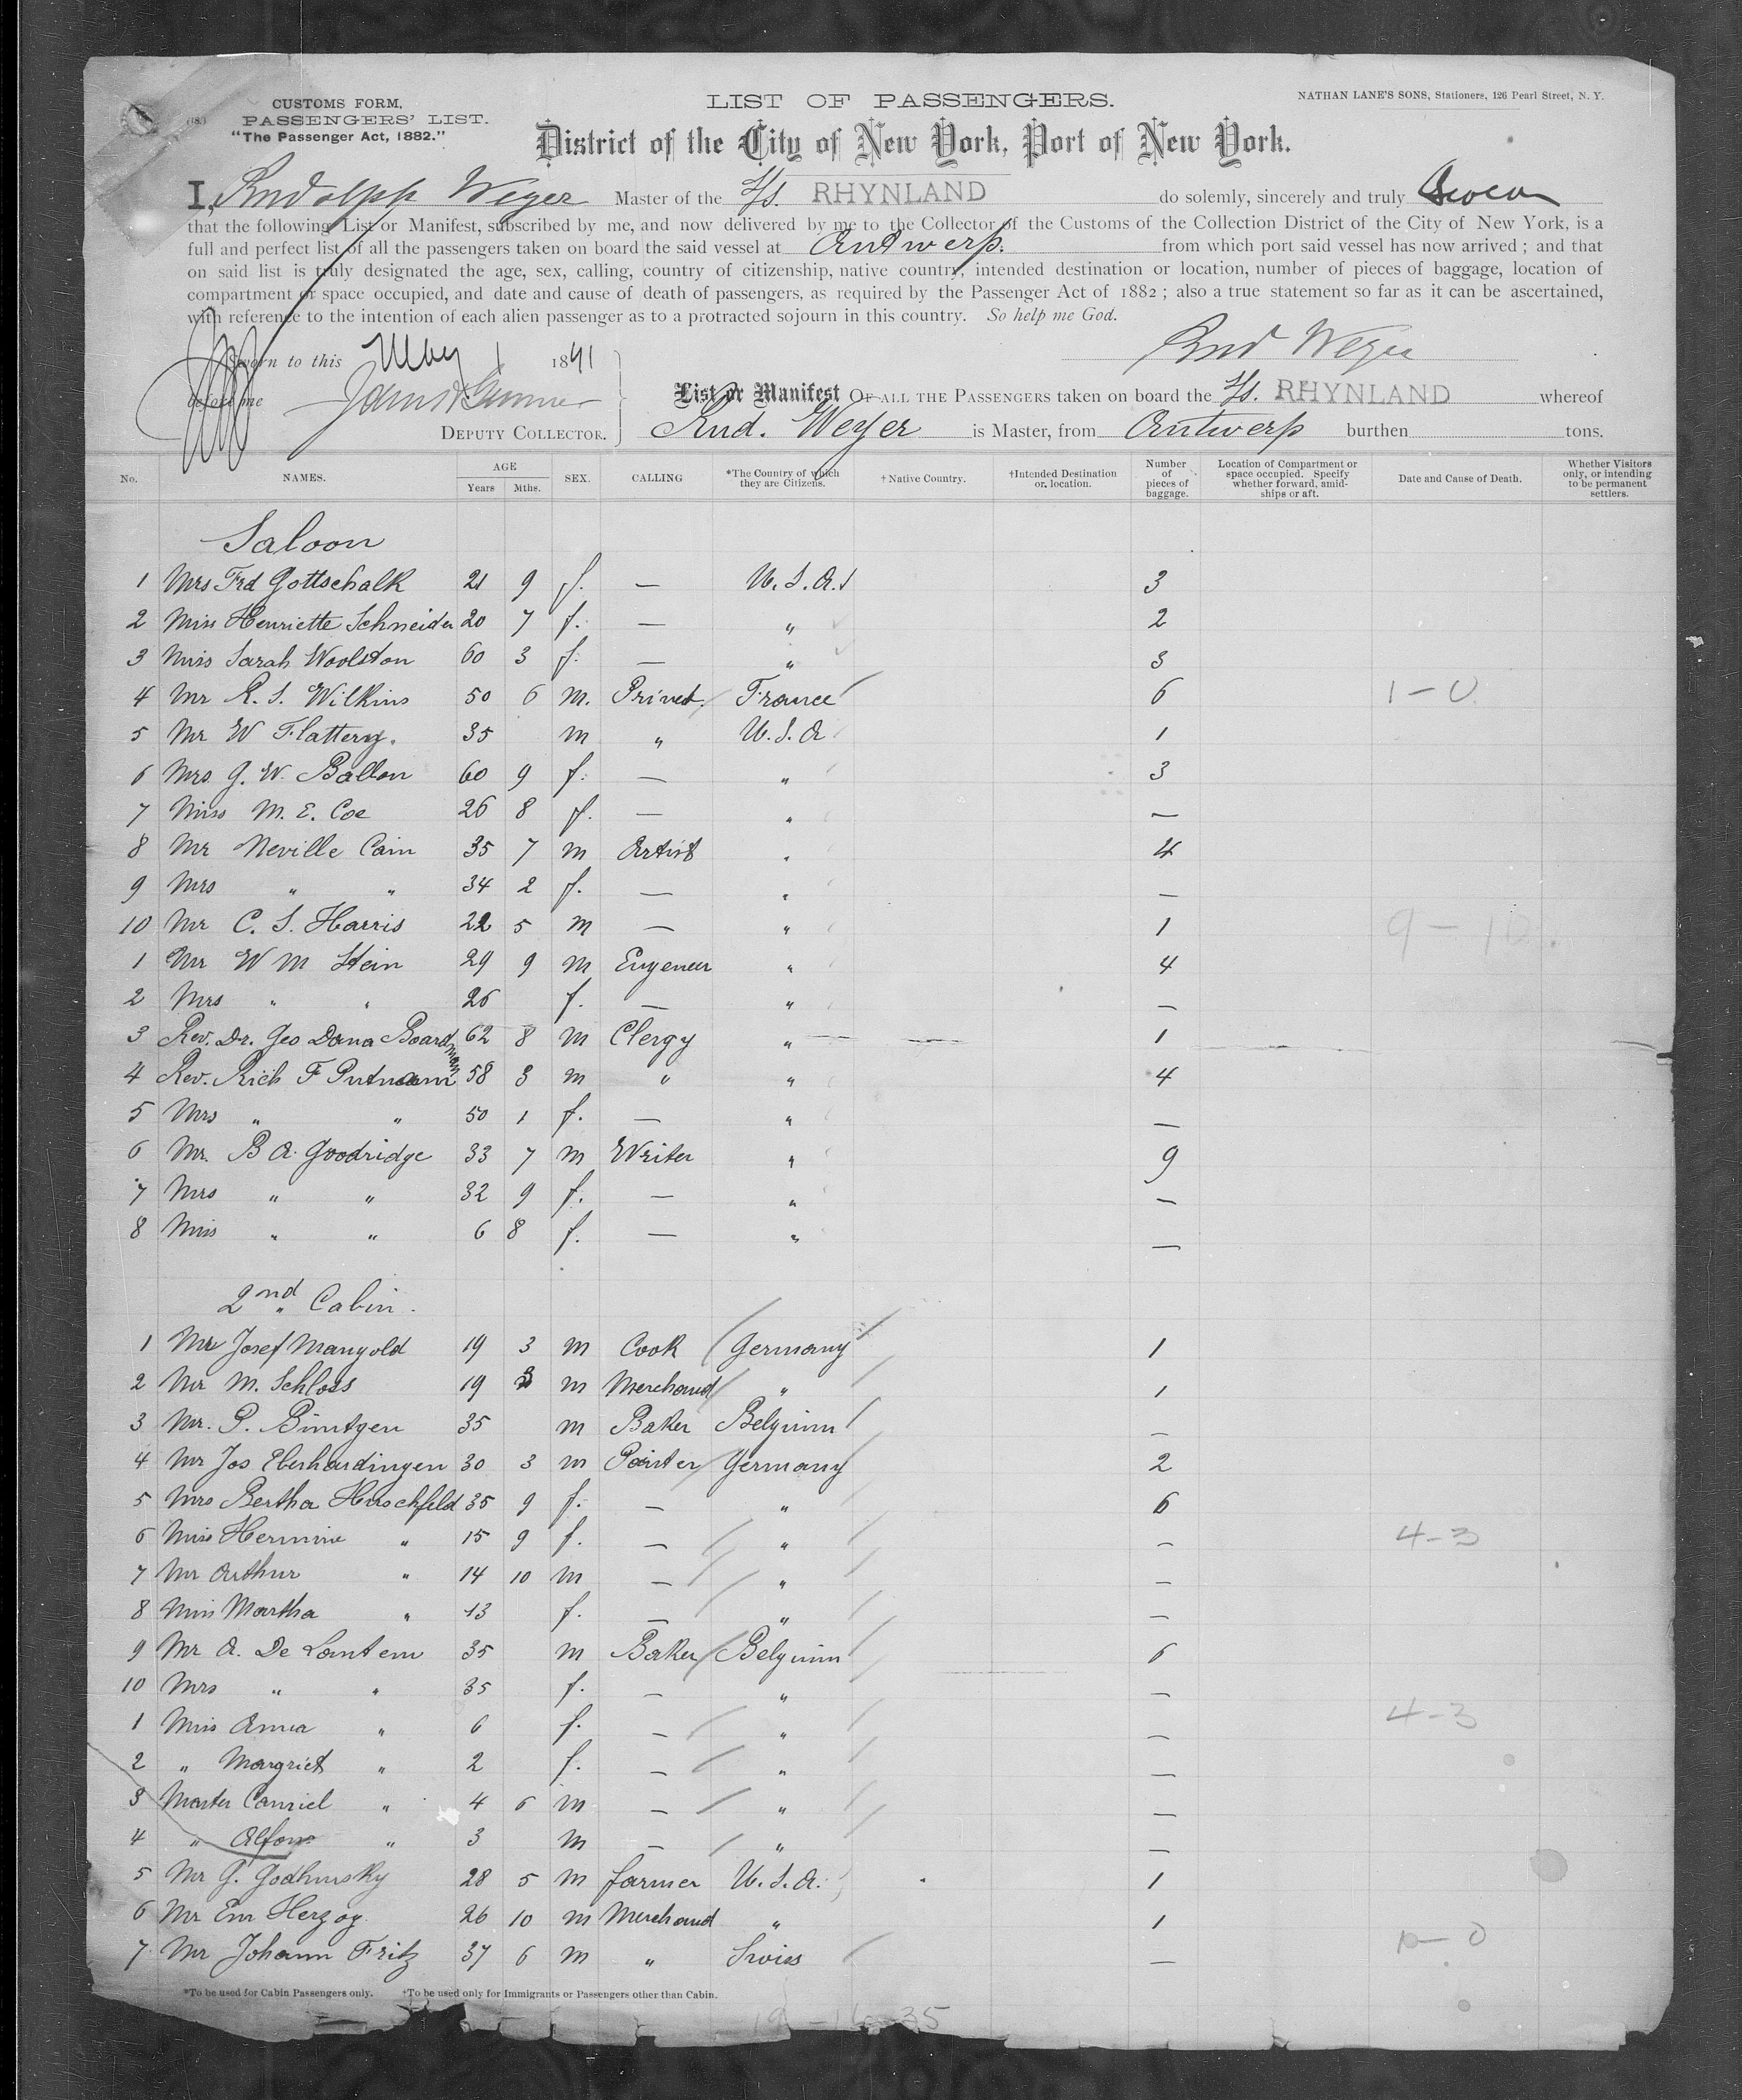 CUSTOMS FORM.
PASSENGERS' LIST.
"The Passenger Act, 1882."
LIST OF PASSENGERS.
NATHAN LANE'S SONS, Stationers, 126 Pearl Street, N. Y.
District of the City of New York, Port of New York.
I, Rudolph Weyer Master of the S/s. RHYNLAND do solemnly, sincerely and truly Swear
that the following List or Manifest, subscribed by me, and now delivered by me to the Collector of the Customs of the Collection District of the City of New York, is a
full and perfect list of all the passengers taken on board the said vessel at Antwerp. from which port said vessel has now arrived; and that
on said list is truly designated the age, sex, calling, country of citizenship, native country, intended destination or location, number of pieces of baggage, location of
compartment or space occupied, and date and cause of death of passengers, as required by the Passenger Act of 1882; also a true statement so far as it can be ascertained,
with reference to the intention of each alien passenger as to a protracted sojourn in this country. So help me God.
Sworn to this May 1 1891
Rud Weyer
before me
DEPUTY COLLECTOR.
List or Manifest OF ALL THE PASSENGERS taken on board the S/s. RHYNLAND whereof
Rud. Weyer is Master, from Antwerp burthen tons.
No. NAMES. AGE Years Mths. SEX. CALLING *The Country of which they are Citizens. †Native Country. †Intended Destination or location. Number of pieces of baggage. Location of Compartment or space occupied. Specify whether forward, amidships or aft. Date and Cause of Death. Whether Visitors only, or intending to be permanent settlers.
Saloon
1 Mrs Frd Gottschalk 21 9 f. — U.S.A. 3
2 Miss Henriette Schneider 20 7 f. — " 2
3 Miss Sarah Woolston 60 3 f. — " 3
4 Mr R. S. Wilkins 50 6 m. Privat. France 6 1-0
5 Mr W Flattery. 35 m " U.S.A 1
6 Mrs G. W. Ballon 60 9 f. — " 3
7 Miss M. E. Coe 26 8 f. — " —
8 Mr Neville Cain 35 7 m Artist " 4
9 Mrs " " 34 2 f. — " —
10 Mr C. S. Harris 22 5 m — " 1 9-10
1 Mr W M Stein 29 9 m Engeneer " 4
2 Mrs " " 26 f. — " —
3 Rev. Dr. Geo Dana Boardman 62 8 m Clergy " 1
4 Rev. Rich F Putnam 58 3 m " " 4
5 Mrs " " 50 1 f. — " —
6 Mr. B A. Goodridge 33 7 m Writer " 9
7 Mrs " " 32 9 f. — " —
8 Miss " " 6 8 f. — " —
2nd Cabin.
1 Mr Josef Mangold 19 3 m Cook Germany 1
2 Mr M. Schloss 19 3 m Merchand " 1
3 Mr. P. Bintgen 35 m Baker Belgium —
4 Mr Jos Eberhardingen 30 3 m Painter Germany 2
5 Mrs Bertha Hirschfeld 35 9 f. — " 6
6 Miss Hermine " 15 9 f. — " — 4-3
7 Mr Arthur " 14 10 m — " —
8 Miss Martha " 13 f. — " —
9 Mr A. De Lantem 35 m Baker Belgium 6
10 Mrs " " 35 f. — " —
1 Miss Anna " 6 f. — " — 4-3
2 " Margriet " 2 f. — " —
3 Master Camiel " 4 6 m — " —
4 " Alfons " 3 m — " —
5 Mr G. Godhursky 28 5 m farmer U.S.A. 1
6 Mr Em Herzog 26 10 m Merchand " 1
7 Mr Johann Fritz 37 6 m " Swiss —
*To be used for Cabin Passengers only. †To be used only for Immigrants or Passengers other than Cabin.